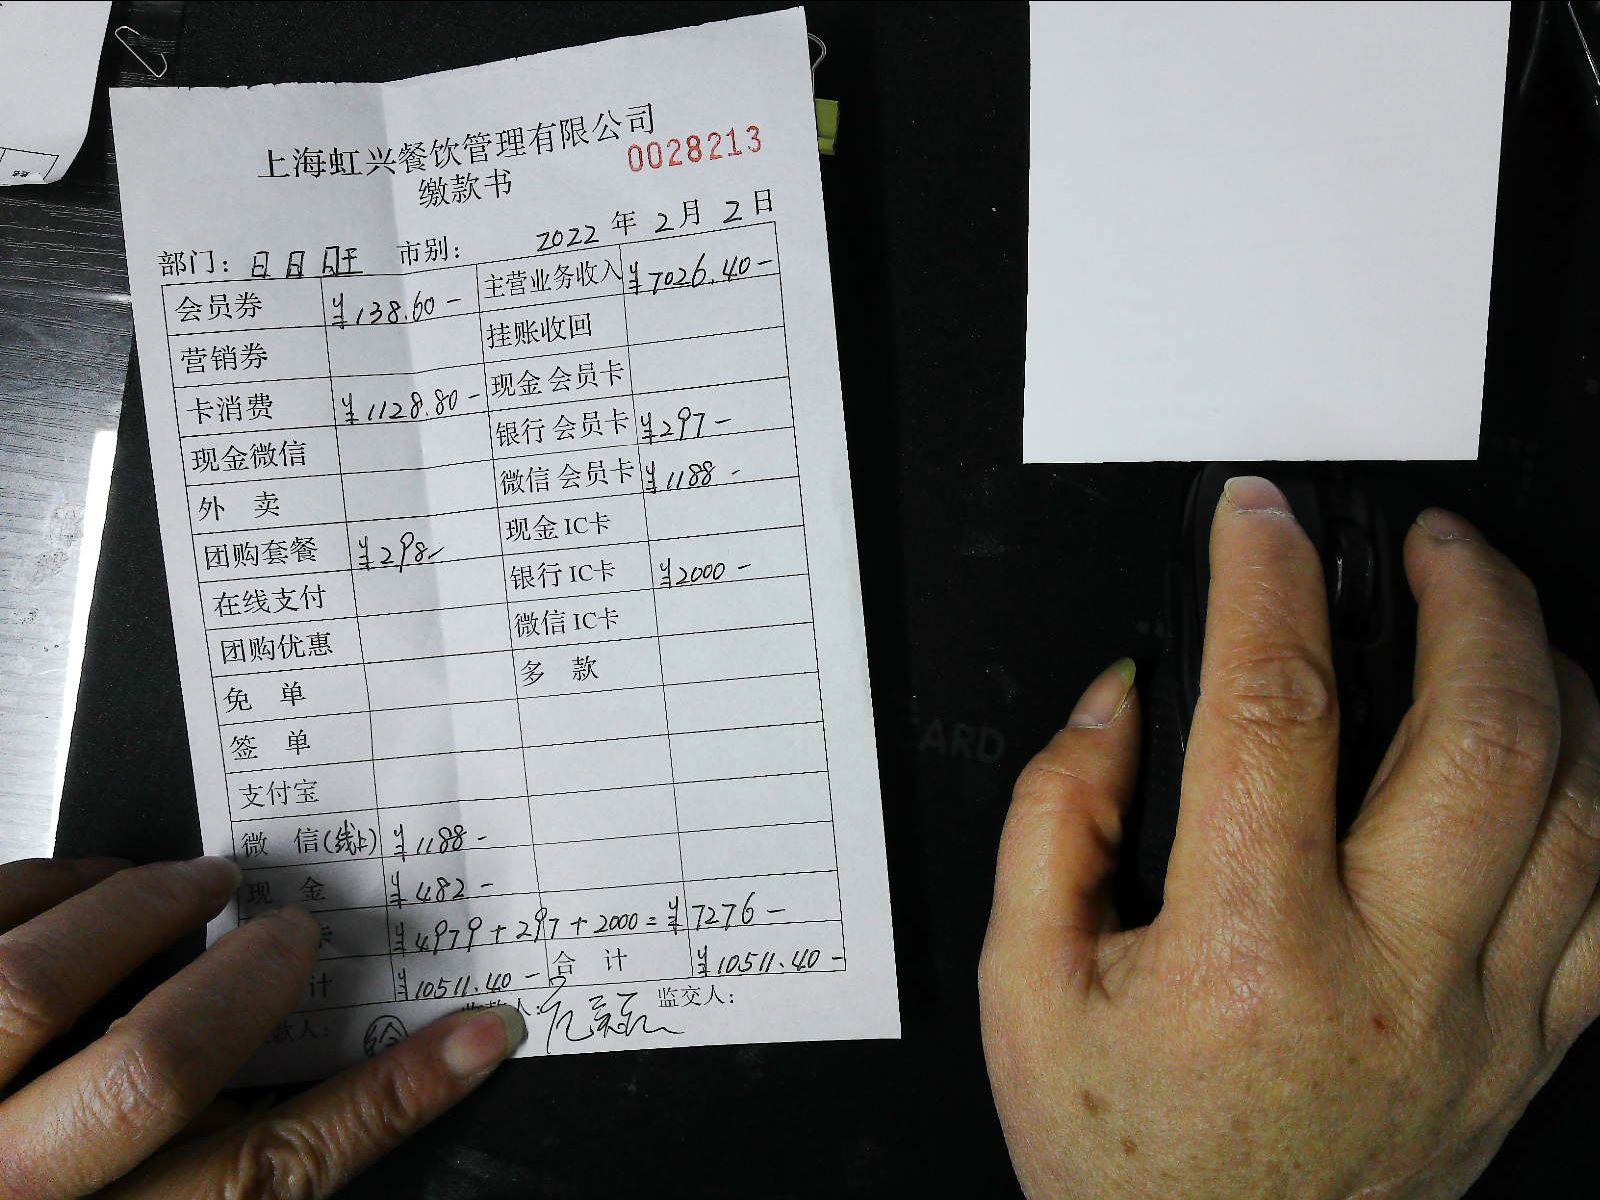 上海虹兴餐饮管理有限公司
0028213
缴款书
2022 年 2 月 2 日
部门: 日日旺 市别:
会员券 ¥138.60- 主营业务收入 ¥7026.40-
营销券 挂账收回
卡消费 ¥1128.80- 现金 会员卡
现金微信 银行 会员卡 ¥297-
外 卖 微信 会员卡 ¥1188-
团购套餐 ¥298- 现金 IC卡
在线支付 银行 IC卡 ¥2000-
团购优惠 微信 IC卡
免 单 多 款
签 单
支付宝
微 信(线上) ¥1188-
现 金 ¥482-
卡 ¥4979+297+2000=¥7276-
计 ¥10511.40- 合 计 ¥10511.40-
款人: 收款人: 监交人:
CARD